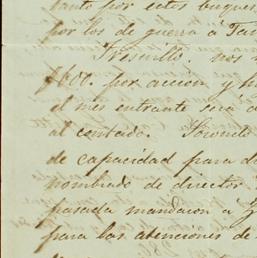 tanto por estos buques
por los de guerra a Tam
Fresnillo. nos
$600. por accion y h
el mes entrante sera d
al contado.
de capacidad para d
nombrado de director
pasada mandaron a
para las atenciones de